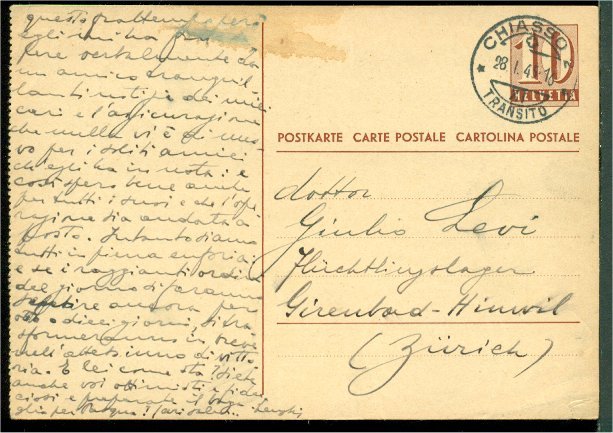 questo frattempo però
egli mi ha fra
pure verbalmente da
un amico tranquil
lanti notizie dei miei
cari e l'assicurazione
che nulla vi è di nuo
vo per i soliti amici
ch'egli ha in nota: e
così spero bene anche
per tutti i suoi e che l'ope
razione sia andata a
posto. Intanto siamo
tutti in piena euforia
e se i raggianti ordini
del giorno si faranno
sentire ancora per
otto o dieci giorni, si tra
sformeranno in breve
nell'altissimo di vitto
ria. E lei come sta? Siate
anche voi ottimisti e fidu
ciosi e preparate il
per Pasqua!
CHIASSO 2
28.I.45-18
TRANSITO
10
HELVETIA
POSTKARTE CARTE POSTALE CARTOLINA POSTALE
dottor
Giulio Levi
Flüchtlingslager
Girenbad-Hinwil
(Zürich)